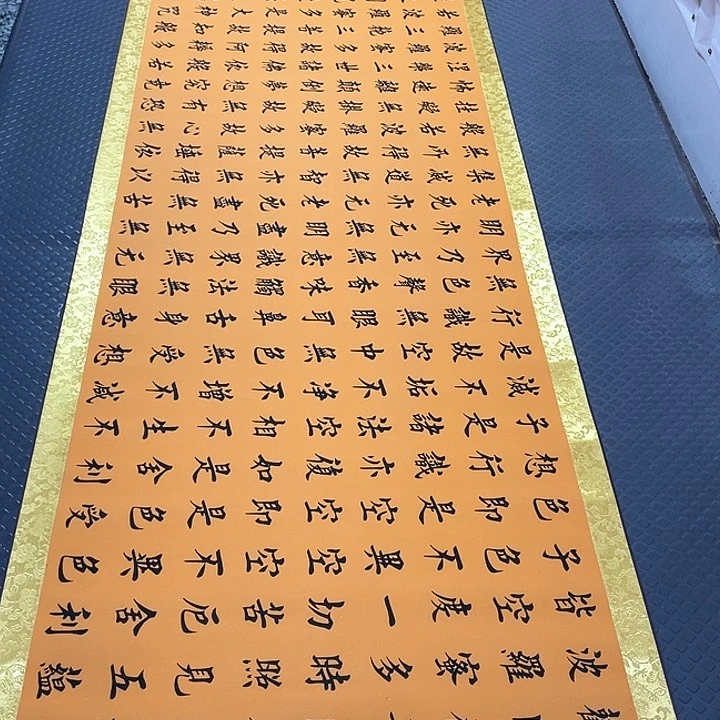 波羅蜜多時照見五蘊
皆空度一切苦厄舍利
子色不異空空不異色
色即是空空即是色受
想行識亦復如是舍利
子是諸法空相不生不
滅不垢不淨不增不減
是故空中無色無受想
行識無眼耳鼻舌身意
無色聲香味觸法無眼
界乃至無意識界無无
明亦无無明盡乃至無
老死亦无老死盡無苦
集滅道無智亦無得以
無所得故菩提薩埵依
般若波羅蜜多故心無
挂礙無挂礙故無有恐
怖遠離顛倒夢想究竟
涅槃三世諸佛依般若
波羅蜜多故得阿耨多
羅三藐三菩提故知般
若波羅蜜多是大神咒